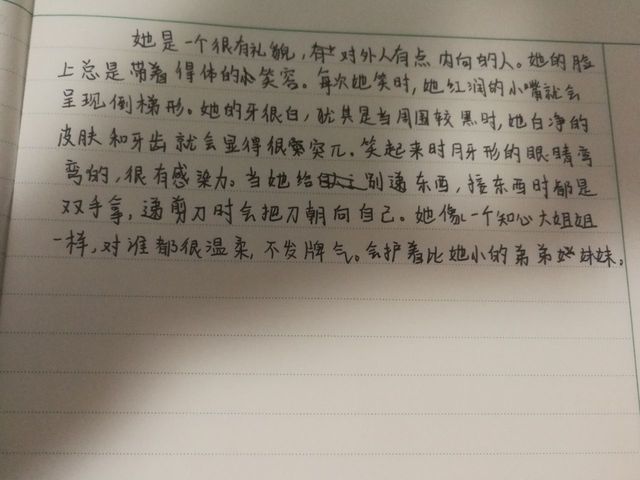 她是一个很有礼貌，有对外人有点内向的人。她的脸
上总是带着得体的笑容。每次她笑时，她红润的小嘴就会
呈现倒梯形。她的牙很白，犹其是当周围较黑时，她白净的
皮肤和牙齿就会显得很突兀。笑起来时月牙形的眼睛弯
弯的，很有感染力。当她给别递东西，接东西时都是
双手拿，递剪刀时会把刀朝向自己。她像一个知心大姐姐
一样，对谁都很温柔，不发牌气。会护着比她小的弟弟妹妹。